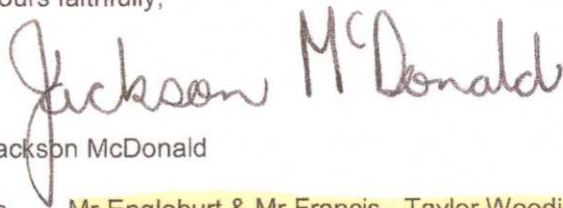 ours faithfully,
Jackson McDonald
ackson McDonald
Mr Engleburt & Mr Francis - Taylor Woodi